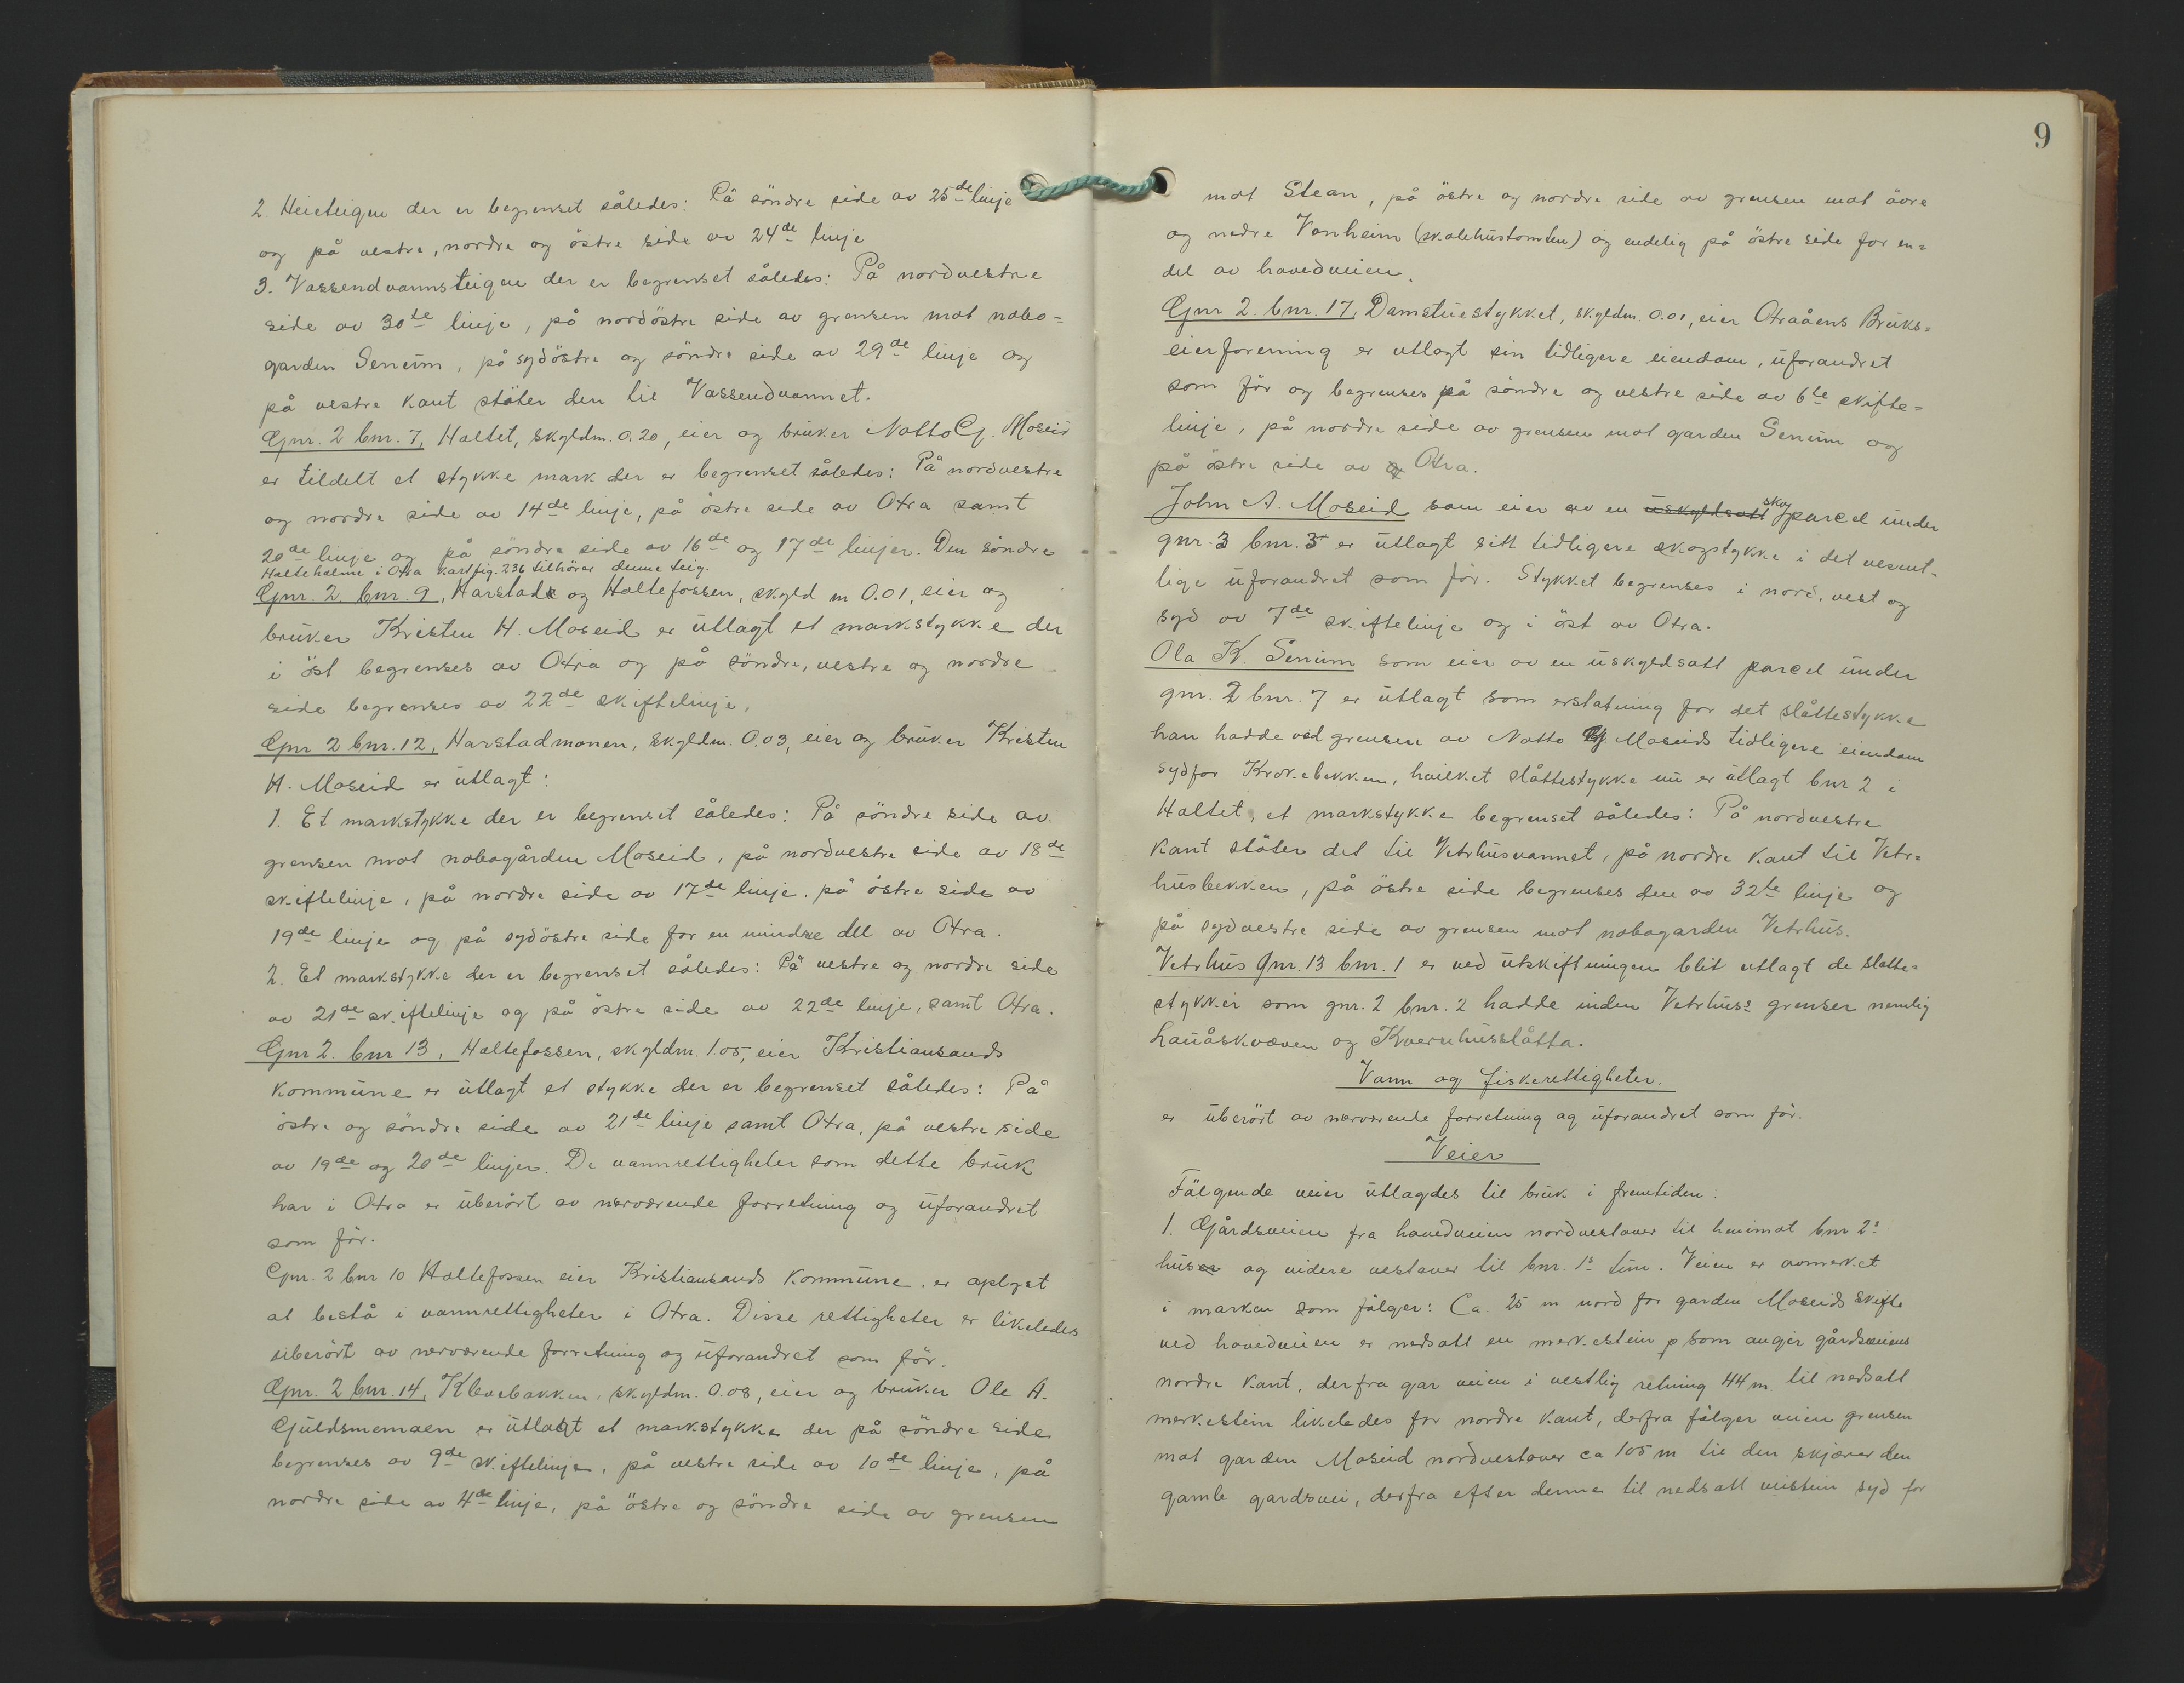 2. Heieteigen der er begrenset således: På söndre side av 25de linje
og på vestre, nordre og östre side av 24de linje
3. Vassendvannsteigen der er begrenset således: På nordvestre
side av 30te linje, på nordöstre side av grensen mot nabo=
garden Senum, på sydöstre og söndre side av 29de linje og
på vestre kant stöter den til Vassendvannet.
Gnr. 2 bnr. 7, Haltet, skyldm. 0.20, eier og bruker Natto G. Moseid
er tildelt et stykke mark der er begrenset således: På nordvestre
og nordre side av 14de linje, på östre side av Otra samt
20de linje og på söndre side av 16de og 17de linjer. Den söndre
Halteholme i Otra kartfig. 236 tilhörer denne teig.
Gnr. 2. bnr. 9, Harstad og Haltefossen, skyld m 0.01, eier og
bruker Kristen H. Moseid er utlagt et markstykke der
i öst begrenses av Otra og på söndre, vestre og nordre
side begrenses av 22de skiftelinje.
Gnr 2 bnr. 12, Harstadmonen, skyldm. 0.03, eier og bruker Kristen
H. Moseid er utlagt:
1. Et markstykke der er begrenset således: På söndre side av
grensen mot nabogården Moseid, på nordvestre side av 18de
skiftelinje, på nordre side av 17de linje. på östre side av
19de linje og på sydöstre side for en mindre del av Otra.
2. Et markstykke der er begrenset således: På vestre og nordre side
av 21de skiftelinje og på östre side av 22de linje, samt Otra.
Gnr 2. bnr 13, Haltefossen, skyldm. 1.05, eier Kristiansands
kommune er utlagt et stykke der er begrenset således: På
östre og söndre side av 21de linje samt Otra, på vestre side
av 19de og 20de linjer. De vannrettigheter som dette bruk
har i Otra er uberört av nærværende forretning og uforandret
som för.
Gnr. 2 bnr 10 Haltefossen eier Kristiansands kommune, er oplyst
at bestå i vannrettigheter i Otra. Disse rettigheter er likeledes
uberört av nærværende forretning og uforandret som för.
Gnr. 2 bnr. 14, Klevebakken, skyldm. 0.08, eier og bruker Ole A.
Guldsmemoen er utlagt et markstykke der på söndre side
begrenses av 9de skiftelinje, på vestre side av 10de linje, på
nordre side av 4de linje, på östre og söndre side av grensen
9
mot Stean, på östre og nordre side av grensen mot övre
og nedre Vonheim (skolehustomten) og endelig på östre side for en=
del av hovedveien.
Gnr 2. bnr. 17, Damstuestykket, skyldm. 0.01, eier Otraåens Bruks=
eierforening er utlagt sin tidligere eiendom, uforandret
som för og begrenses på söndre og vestre side av 6te skifte=
linje, på nordre side av grensen mot garden Senum og
på östre side av Otra.
John A. Moseid som eier av en uskyldsatt skogparcel under
gnr. 3 bnr. 3 er utlagt sitt tidligere skogstykke i det vesent-
lige uforandret som för. Stykket begrenses i nord, vest og
syd av 7de skiftelinje og i öst av Otra.
Ola K. Senum som eier av en uskyldsatt parcel under
gnr. 2 bnr. 7 er utlagt som erstatning for det slåttestykke
han hadde ved grensen av Natto G. Moseids tidligere eiendom
sydfor Krokebekken, hvilket slåttestykke nu er utlagt bnr 2 i
Haltet, et markstykke begrenset således: På nordvestre
kant stöter det til Vetrhusvannet, på nordre kant til Vetr=
husbekken, på östre side begrenses den av 32te linje og
på sydvestre side av grensen mot nabogarden Vetrhus.
Vetrhus gnr. 13 bnr. 1 er ved utskiftningen blit utlagt de slatte=
stykker som gnr. 2 bnr. 2 hadde inden Vetrhus's grenser nemlig
Lauåskvæven og Kvernhusslåtta.
Vann og fiskerettigheter.
er uberört av nærværende forretning og uforandret som för.
Veier
Fölgende veier utlagdes til bruk i fremtiden:
1. Gårdsveien fra hovedveien nordvestover til henimot bnr 2s
huser og videre vestover til bnr. 1s tun. Veien er avmerket
i marken som fölger: Ca. 25 m nord for garden Moseids skifte
ved hovedveien er nedsatt en merkestein p som angir gårdsveiens
nordre kant, derfra gar veien i vestlig retning 44 m. til nedsatt
merkestein likeledes for nordre kant, derfra fölger veien grensen
mot garden Moseid nordvestover ca 105 m til den skjærer den
gamle gardsvei, derfra efter denne til nedsatt veistein syd for